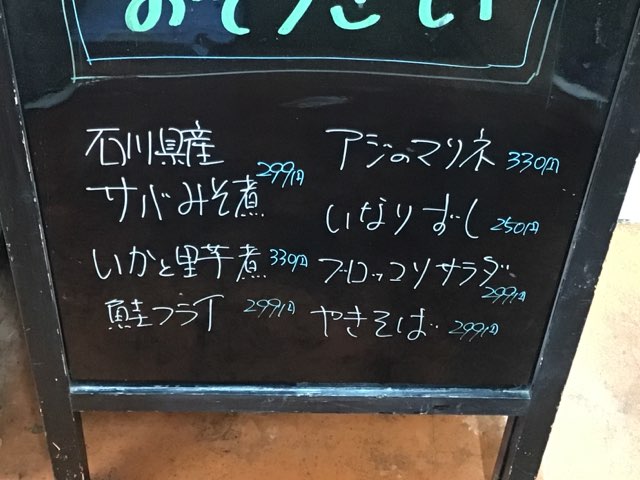 おそうざい
石川県産
サバみそ煮 299円
いかと里芋煮 330円
鮭フライ 299円
アジのマリネ 330円
いなりずし 250円
ブロッコリサラダ 299円
やきそば 299円